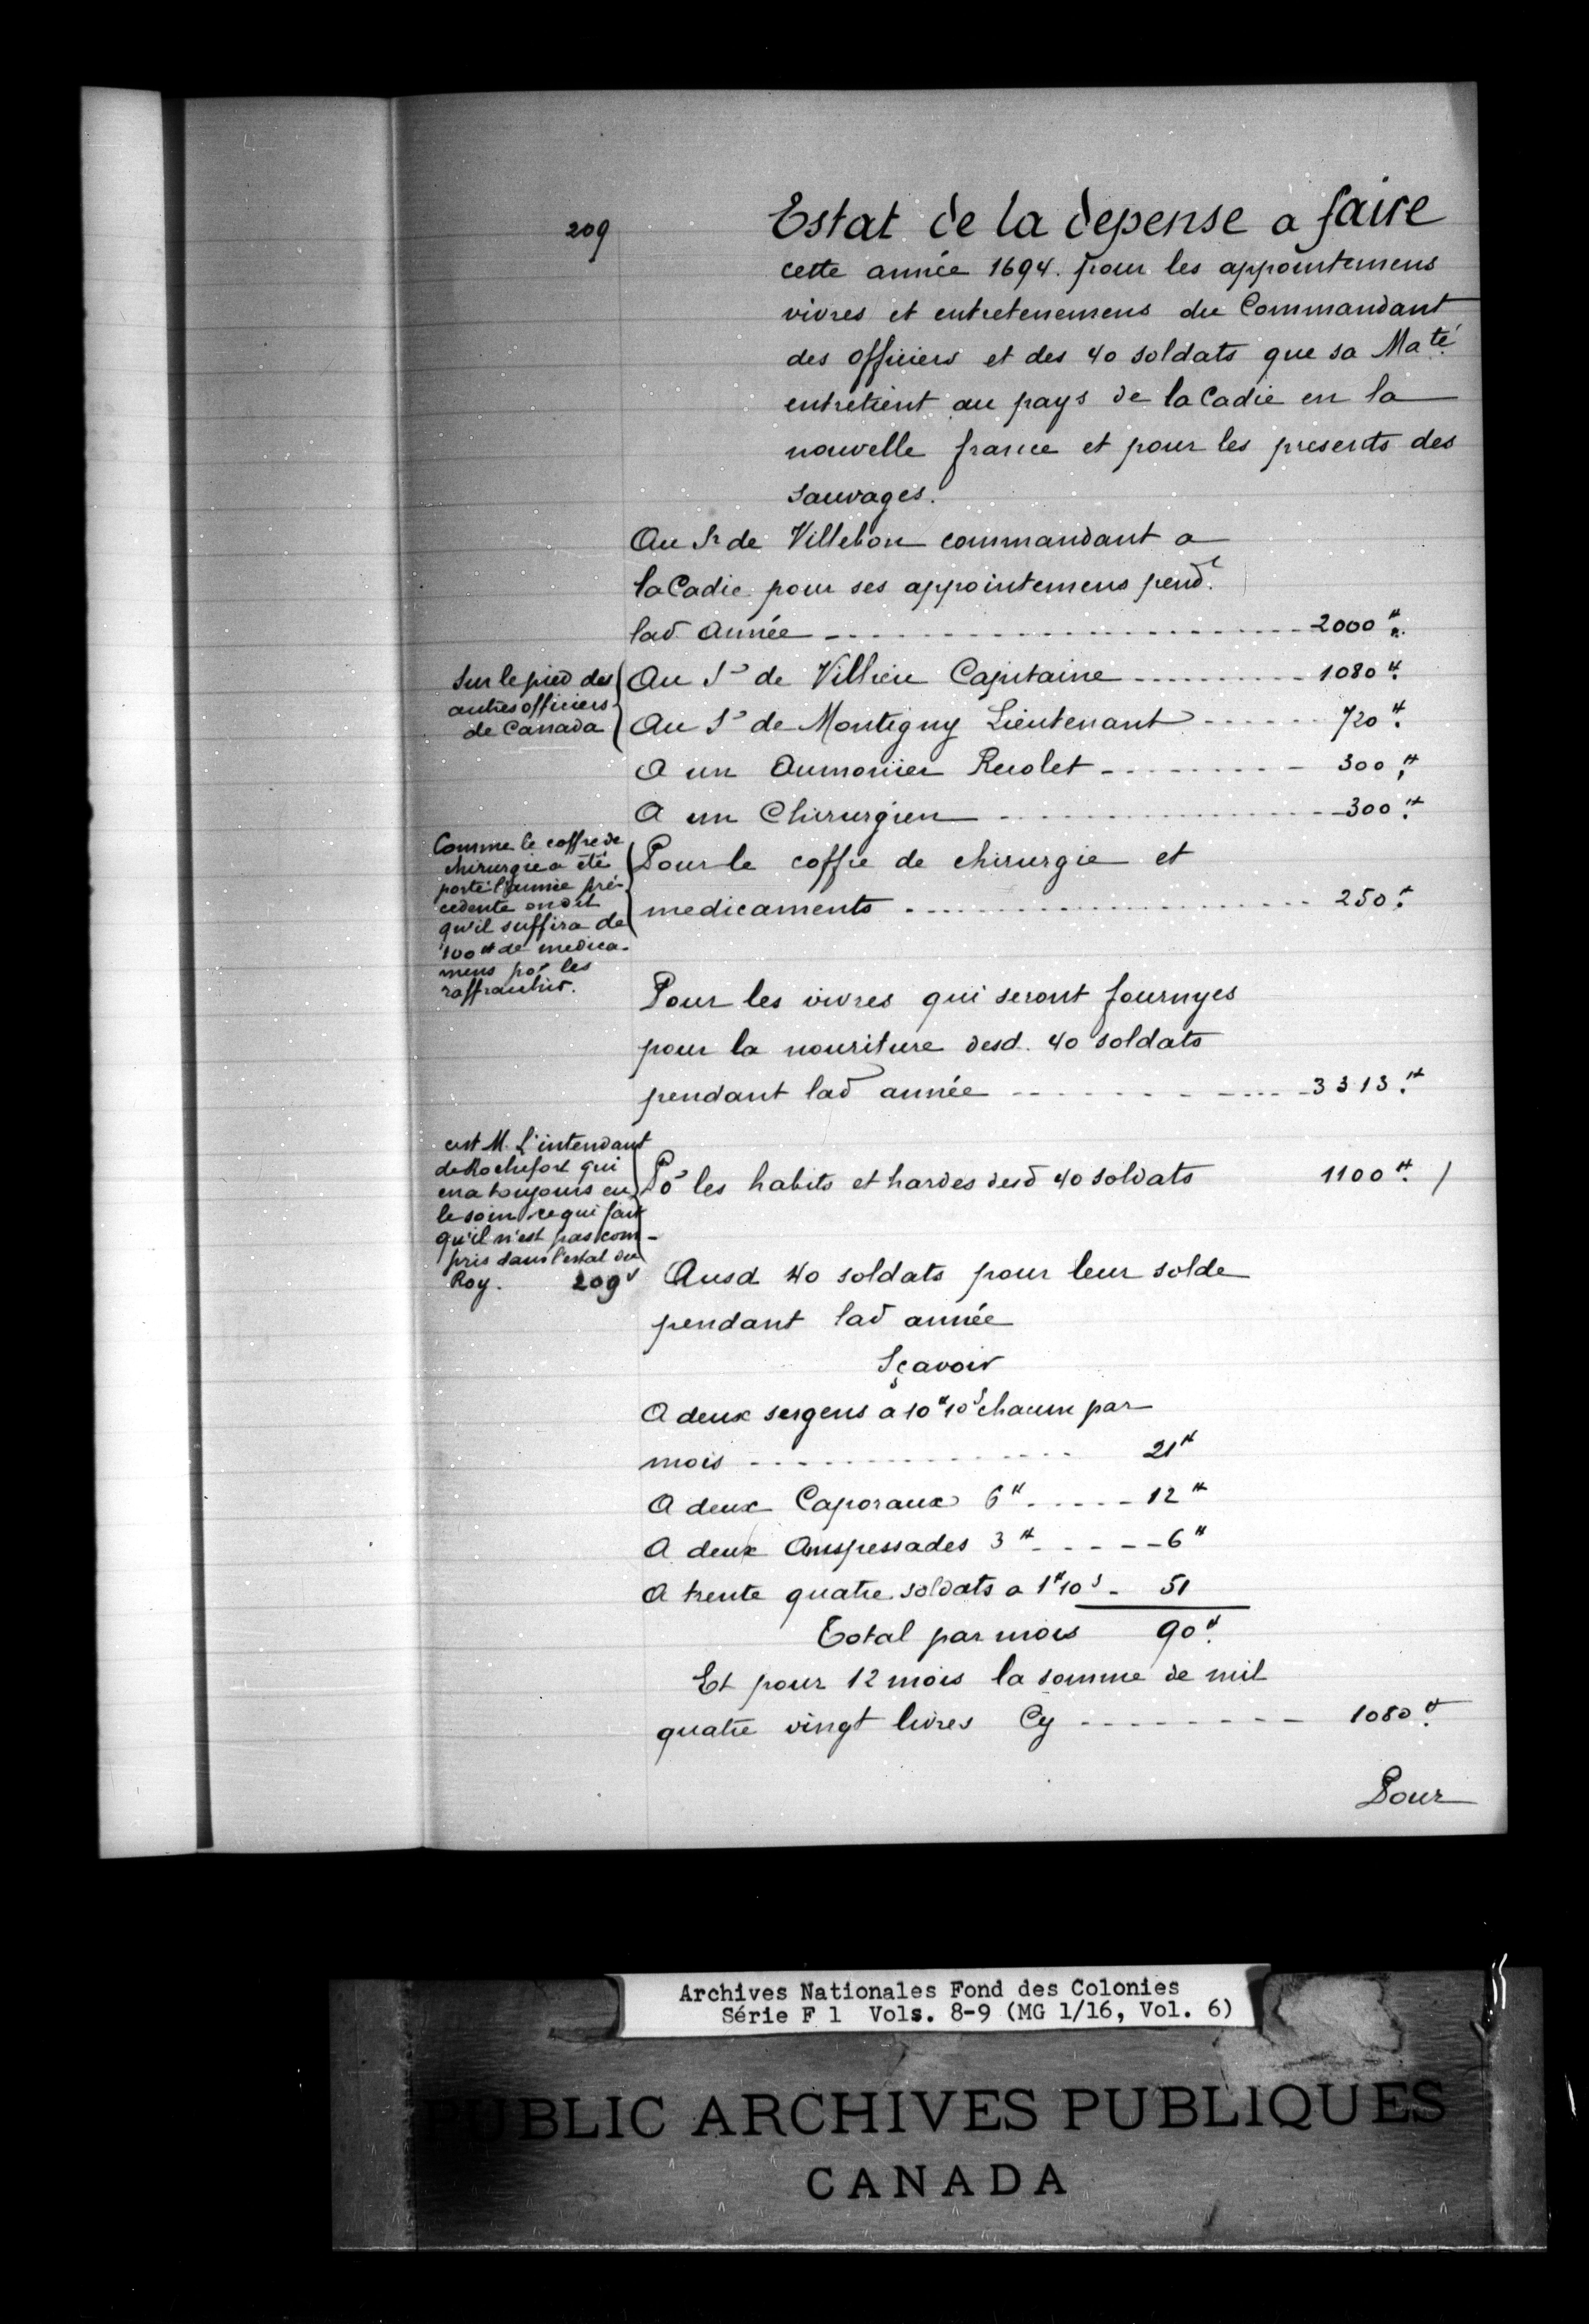 209
Estat de la depense a faire
cette année 1694. pour les appointemens
vivres et entretenemens du Commandant
des officiers et des 40 soldats que sa Ma té
entretient au pays de laCadie en la
nouvelle france et pour les presents des
sauvages.
Au Sr de Villebon commandant a
laCadie pour ses appointemens pend.t
lad Année 2000 ₶
Sur le pied des
autres officiers
de Canada
Au Sr de Villieu Capitaine 1080 ₶
Au Sr de Montigny Lieutenant 720 ₶
A un Aumonier Recolet 300 ₶
A un Chirurgien 300 ₶
Comme le coffre de
chirurgie a été
porté l'année pré-
cedente on dit
qu'il suffira de
100 ₶ de medica-
mens por les
raffraichir.
Pour le coffre de chirurgie et
medicaments 250 ₶
Pour les vivres qui seront fournyes
pour la nouriture desd. 40 soldats
pendant lad année 3313 ₶
cest M. L'intendant
de Rochefort qui
en a toujours eu
le soin ce qui fait
qu'il n'est pas com-
pris dans l'estat du
Roy.
Po r les habits et hardes desd 40 soldats 1100 ₶ /
209 v
Ausd 40 soldats pour leur solde
pendant lad année
Sçavoir
A deux sergens a 10 ₶ 10 s chacun par
mois 21 ₶
A deux Caporaux 6 ₶ 12 ₶
A deux Anspessades 3 ₶ 6 ₶
A trente quatre soldats a 1 ₶ 10 s 51
Total par mois 90 ₶
Et pour 12 mois la somme de mil
quatre vingt livres Cy 1080 ₶
Pour
Archives Nationales Fond des Colonies
Série F 1 Vols. 8-9 (MG 1/16, Vol. 6)
PUBLIC ARCHIVES PUBLIQUES
CANADA